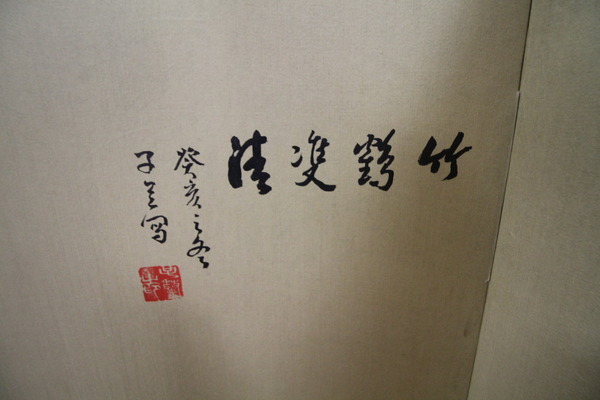 竹鶴雙清
癸亥之冬
子 寫